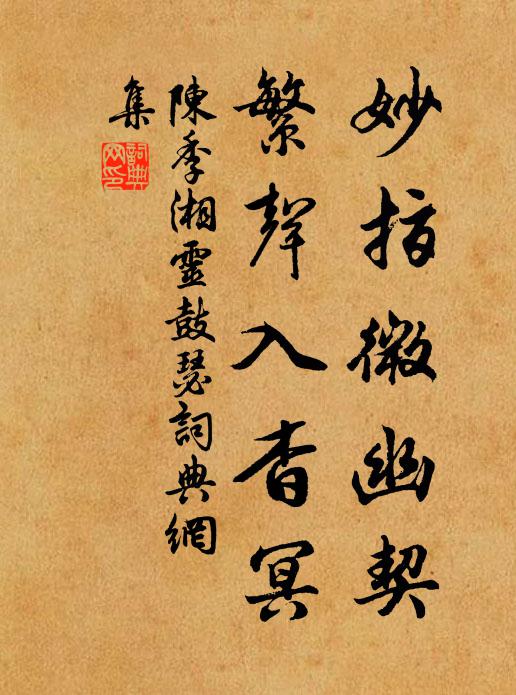 妙指微幽契
繁聲入杳冥
陳季湘靈鼓瑟詞典網
集
詞典網印